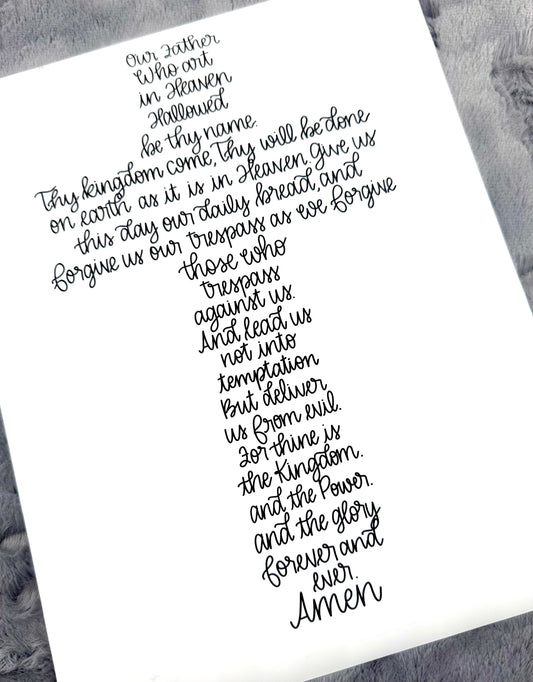 Our Father
Who art
in Heaven
Hallowed
be thy name.
Thy kingdom come, Thy will be done
on earth as it is in Heaven. Give us
this day our daily bread, and
forgive us our trespass as we forgive
those who
trespass
against us.
And lead us
not into
temptation
But deliver
us from evil.
For thine is
the Kingdom.
and the Power.
and the glory
forever and
ever.
Amen